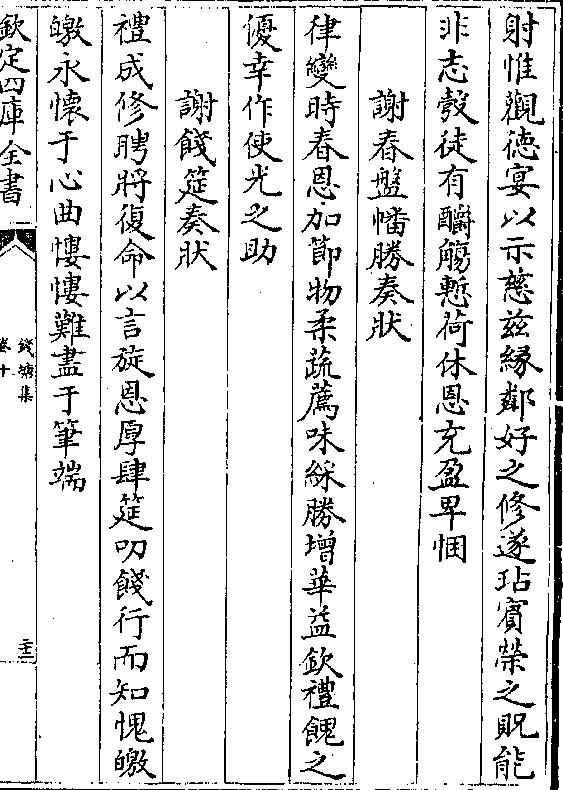 射惟觀德宴以示慈兹緣鄰好之修遂玷賓榮之貺能
非志彀徒有釂觴慙荷休恩充盈卑悃
謝春盤幡勝奏狀
律變時春恩加節物柔蔬薦味綵勝增華益欽禮餽之
優幸作使光之助
謝餞筵奏狀
禮成修聘將復命以言旋恩厚肆筵叨餞行而知愧皦
皦永懷于心曲慺慺難盡于筆端
欽定四庫全書
錢塘集
卷十
二十三